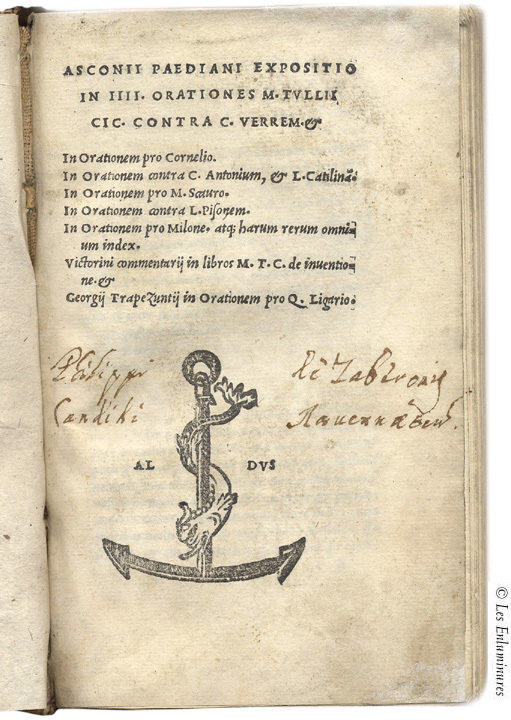 ASCONII PAEDIANI EXPOSITIO
IN IIII. ORATIONES M. TVLLII
CIC. CONTRA C. VERREM. &
In Orationem pro Cornelio.
In Orationem contra C. Antonium, & L. Catilinā.
In Orationem pro M. Scauro.
In Orationem contra L. Pisonem.
In Orationem pro Milone. atq; harum rerum omni-
um index.
Victorini commentarij in libros M. T. C. de inuentio-
ne. &
Georgij Trapezuntij in Orationem pro Q. Ligario.
Philippi
AL DVS
© Les Enluminures